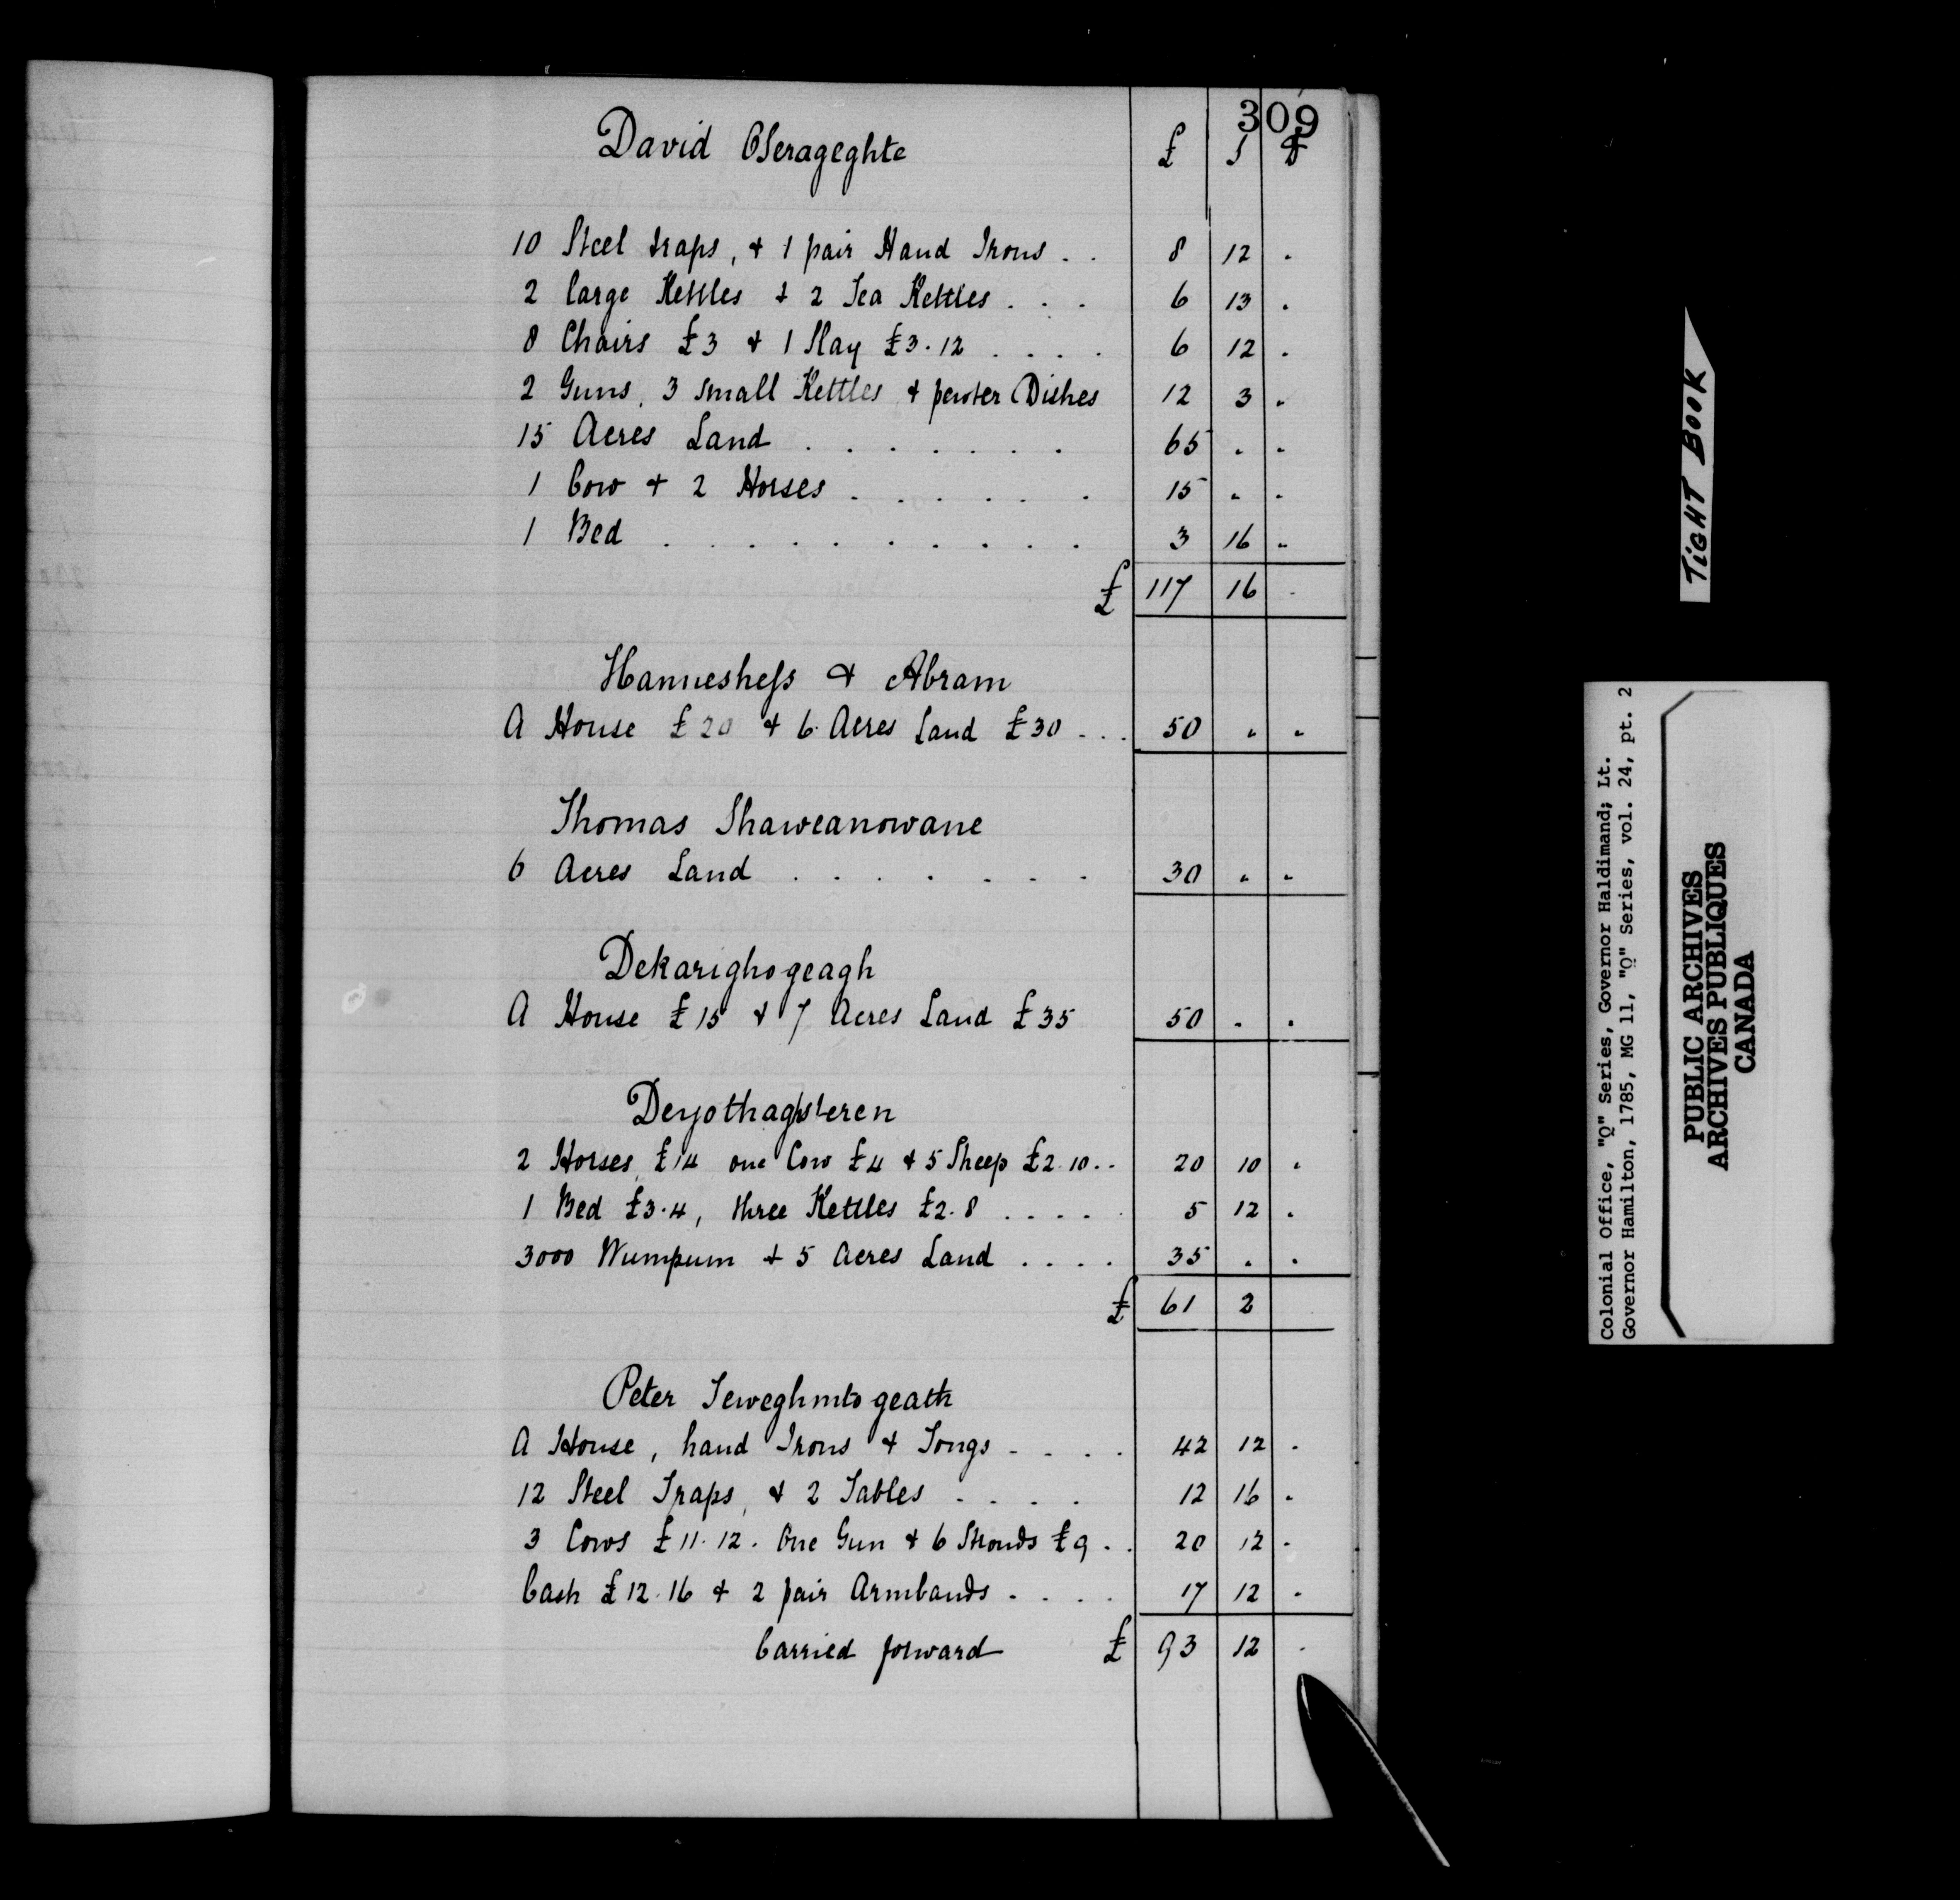 309
David Oserageghte £ S D
10 Steel traps, & 1 pair Hand Irons . . 8 12 .
2 large Kettles & 2 Tea Kettles . . . 6 13 .
8 Chairs £3 & 1 Slay £3.12 . . . . 6 12 .
2 Guns, 3 small Kettles & pewter Dishes 12 3 .
15 Acres Land . . . . . . . 65 . .
1 Cow & 2 Horses . . . . . . 15 . .
1 Bed . . . . . . . . . . 3 16 .
£ 117 16 .
Hanneshess & Abram
A House £20 & 6 Acres Land £30 . . . 50 . .
Thomas Shaweanowane
6 Acres Land . . . . . . . . 30 . .
Dekarighogeagh
A House £15 & 7 Acres Land £35 50 . .
Deyothaghsteren
2 Horses, £14 one Cow £4 & 5 Sheep £2.10 . . 20 10 .
1 Bed £3.4, three Kettles £2.8 . . . . . 5 12 .
3000 Wumpum & 5 Acres Land . . . . 35 . .
£ 61 2
Peter Teweghnitogeath
A House, hand Irons & Tongs . . . . 42 12 .
12 Steel Traps, & 2 Tables . . . . 12 16 .
3 Cows £11.12. One Gun & 6 Strouds £9 . . 20 12 .
Cash £12.16 & 2 pair Armbands . . . . 17 12 .
Carried forward £ 93 12 .
TIGHT BOOK
Colonial Office, "Q" Series, Governor Haldimand; Lt.
Governor Hamilton, 1785, MG 11, "Q" Series, vol. 24, pt. 2
PUBLIC ARCHIVES
ARCHIVES PUBLIQUES
CANADA